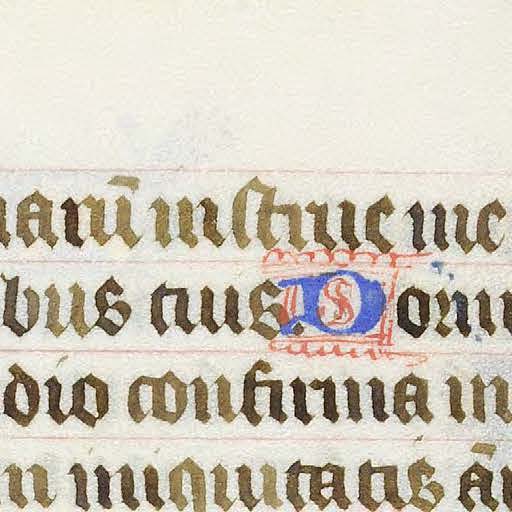 arū instrue me
bus tuis. Domi
dio confirma in
n iniquitatis ā